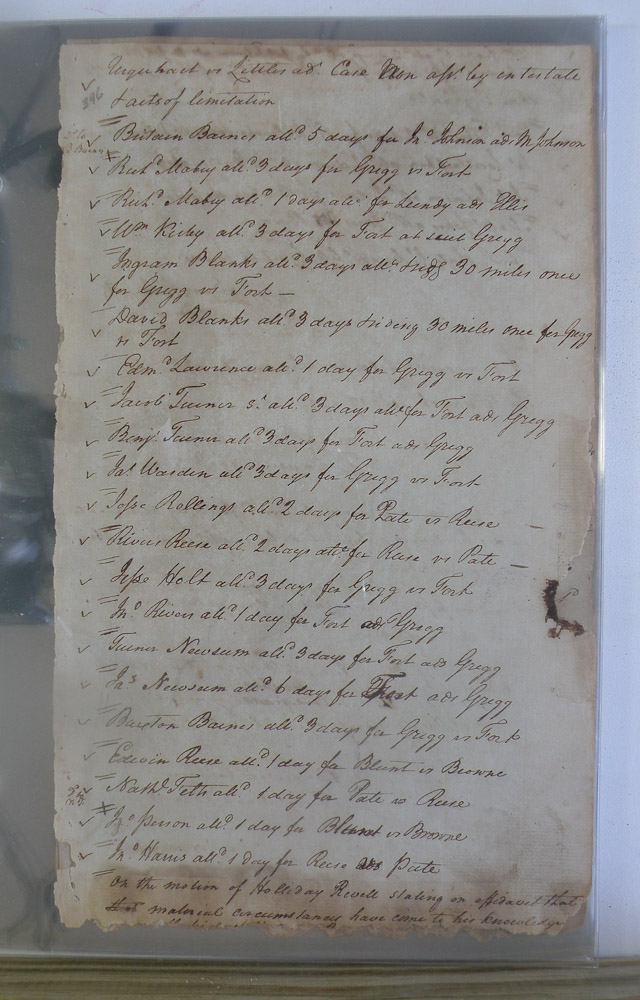 Urquhart vs Littles adr. Case Non asst. by intestate
& acts of limitation
346
Britain Barnes alld. 5 days for Jno. Johnson ads M Johnson
Richd. Mabry alld. 3 days for Gregg vs Fort
Richd. Mabry alld. 1 days for Lundy ads Ellis
Wm Kirby alld. 3 days for Fort at suit Gregg
Ingram Blanks alld. 3 days & 30 miles once
for Gregg vs Fort —
David Blanks alld. 3 days & riding 30 miles once for Gregg
vs Fort
Edmd. Lawrence alld. 1 day for Gregg vs Fort
Jacob Turner Sr. alld. 3 days for Fort ads Gregg
Benjn. Turner alld. 3 days for Fort ads Gregg
Jas. Warden alld. 3 days for Gregg vs Fort
Jesse Rollings alld. 2 days for Pate vs Reese —
Rivers Reese alld. 2 days for Reese vs Pate —
Jesse Holt alld. 3 days for Gregg vs Fort
Jno. Rivers alld. 1 day for Fort ads Gregg
Turner Newsum alld. 3 days for Fort ads Gregg
Jas. Newsum alld. 6 days for Fort ads Gregg
Barton Barnes alld. 3 days for Gregg vs Fort
Edwin Reese alld. 1 day for Blunt vs Browne
Nathl. alld. 1 day for Pate vs Reese
Person alld. 1 day for Blunt vs Browne
Jno. Harris alld. 1 day for Reese ads Pate
On the motion of Holliday Revell stating on affidavit that
material circumstances have come to his knowledge